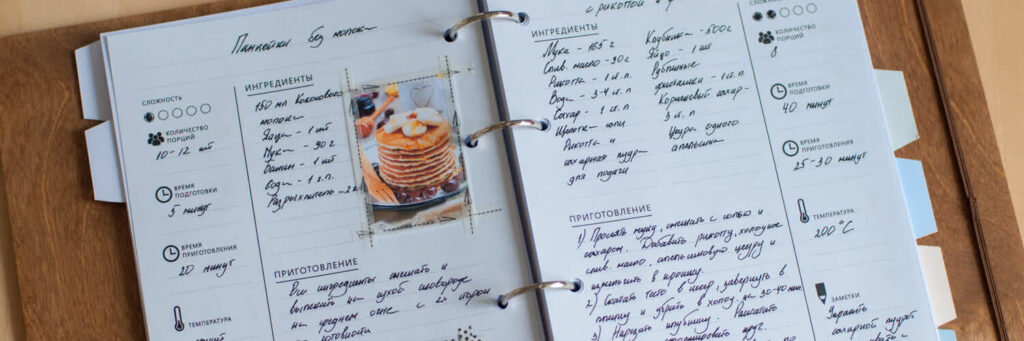 Панкейки без молока
СЛОЖНОСТЬ
КОЛИЧЕСТВО
ПОРЦИЙ
10-12 шт
ВРЕМЯ
ПОДГОТОВКИ
5 минут
ВРЕМЯ
ПРИГОТОВЛЕНИЯ
20 минут
ТЕМПЕРАТУРА
ИНГРЕДИЕНТЫ
150 мл Кокосового
молока
Яйца - 1 шт
Мука - 90 г
Банан - 1 шт
Вода - 1 ст. л.
Разрыхлитель - 2 г
ПРИГОТОВЛЕНИЕ
Все ингредиенты смешать и
выпекать на сухой сковороде
на среднем огне с 2х сторон
готовности
с рикоттой и
ИНГРЕДИЕНТЫ
Мука - 165 г
Слив. масло - 90 г
Рикотта - 1 ст. л.
Вода - 3-4 ст. л
Сахар - 1 ст. л
Щепотка соли
Рикотта и
сахарная пудра
для подачи
Клубника - 500 г
Яйцо - 1 шт
Рубленые
фисташки - 1 ст. л.
Коричневый сахар -
3 ст. л
Цедра одного
апельсина
ПРИГОТОВЛЕНИЕ
1) Просеять муку, смешать с солью и
сахаром. Добавить рикотту, холодное
слив. масло, апельсиновую цедру и
измельчить в крошку.
2) Скатать тесто в шар, завернуть в
пленку и убрать в холод. на 30-40 мин.
3) Нарезать клубнику. Раскатать
СЛОЖНОСТЬ
КОЛИЧЕСТВО
ПОРЦИЙ
8
ВРЕМЯ
ПОДГОТОВКИ
40 минут
ВРЕМЯ
ПРИГОТОВЛЕНИЯ
25-30 минут
ТЕМПЕРАТУРА
200°C
ЗАМЕТКИ
Украсить
сахарной пудрой